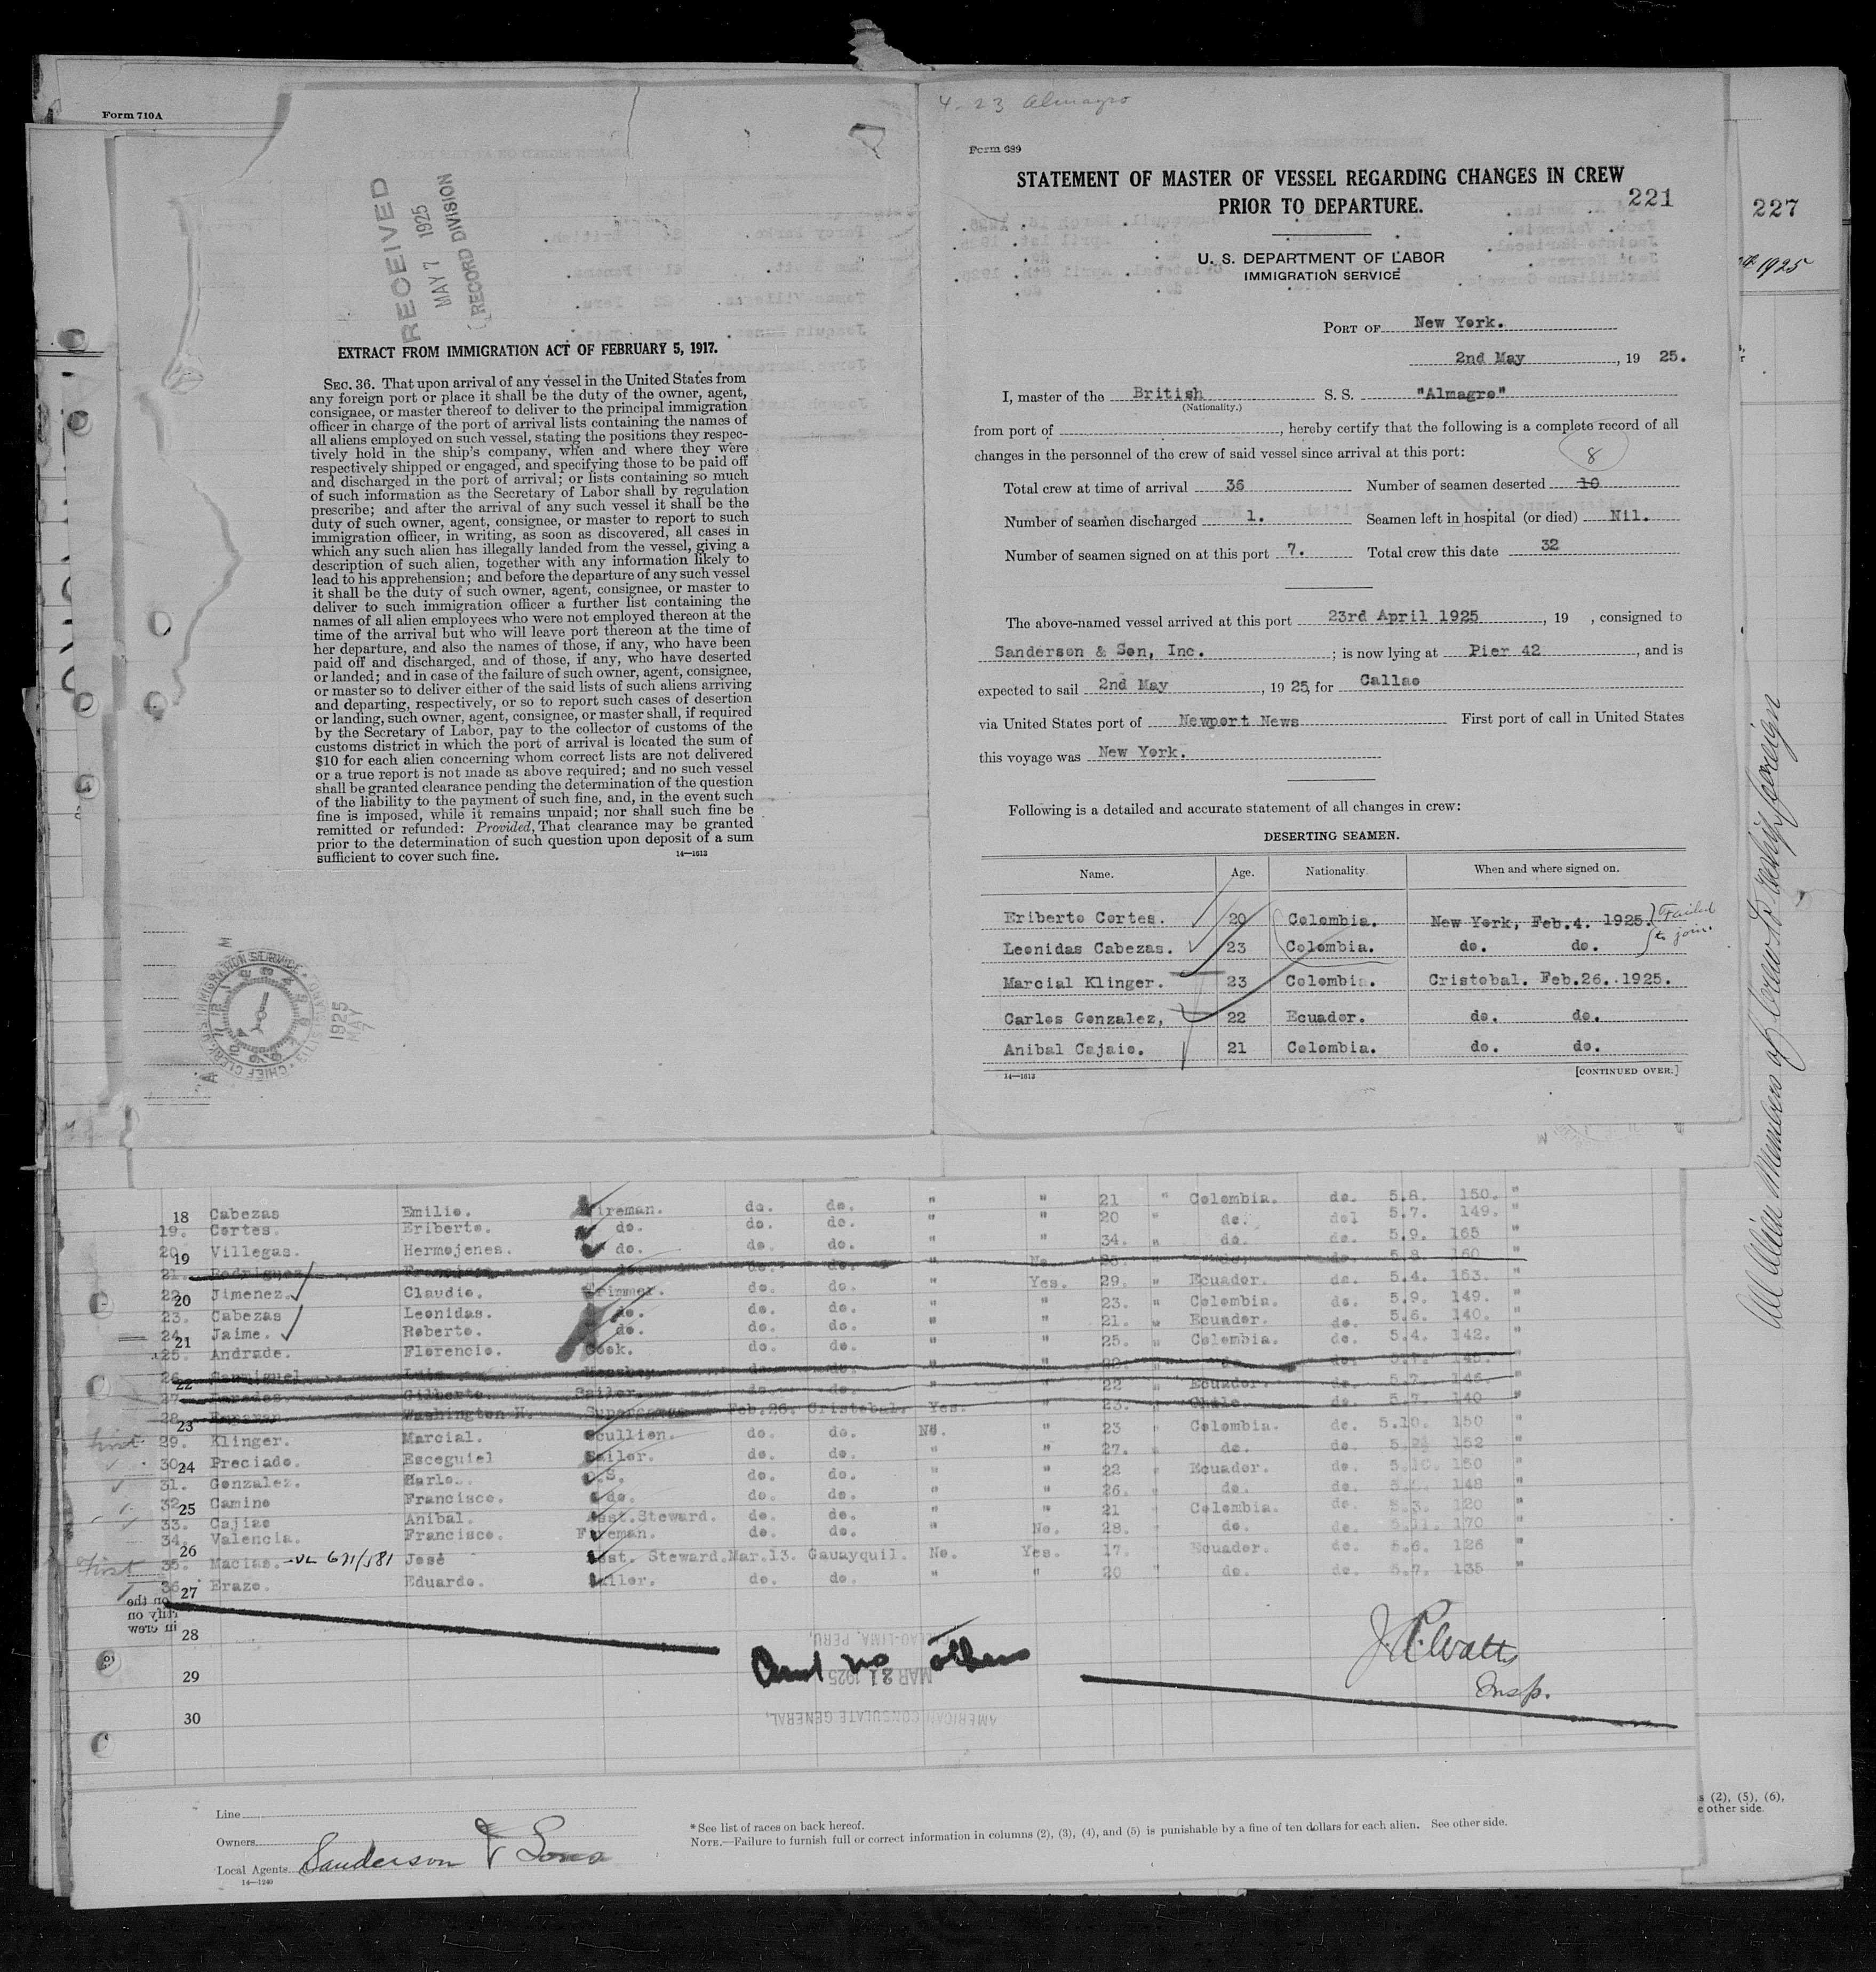 Form 710A
RECEIVED
MAY 7 1925
RECORD DIVISION
EXTRACT FROM IMMIGRATION ACT OF FEBRUARY 5, 1917.
SEC. 36. That upon arrival of any vessel in the United States from
any foreign port or place it shall be the duty of the owner, agent,
consignee, or master thereof to deliver to the principal immigration
officer in charge of the port of arrival lists containing the names of
all aliens employed on such vessel, stating the positions they respec-
tively hold in the ship's company, when and where they were
respectively shipped or engaged, and specifying those to be paid off
and discharged in the port of arrival; or lists containing so much
of such information as the Secretary of Labor shall by regulation
prescribe; and after the arrival of any such vessel it shall be the
duty of such owner, agent, consignee, or master to report to such
immigration officer, in writing, as soon as discovered, all cases in
which any such alien has illegally landed from the vessel, giving a
description of such alien, together with any information likely to
lead to his apprehension; and before the departure of any such vessel
it shall be the duty of such owner, agent, consignee, or master to
deliver to such immigration officer a further list containing the
names of all alien employees who were not employed thereon at the
time of the arrival but who will leave port thereon at the time of
her departure, and also the names of those, if any, who have been
paid off and discharged, and of those, if any, who have deserted
or landed; and in case of the failure of such owner, agent, consignee,
or master so to deliver either of the said lists of such aliens arriving
and departing, respectively, or so to report such cases of desertion
or landing, such owner, agent, consignee, or master shall, if required
by the Secretary of Labor, pay to the collector of customs of the
customs district in which the port of arrival is located the sum of
$10 for each alien concerning whom correct lists are not delivered
or a true report is not made as above required; and no such vessel
shall be granted clearance pending the determination of the question
of the liability to the payment of such fine, and, in the event such
fine is imposed, while it remains unpaid; nor shall such fine be
remitted or refunded: Provided, That clearance may be granted
prior to the determination of such question upon deposit of a sum
sufficient to cover such fine.
14—1613
1925
MAY
7
4-23 Almagro
Form 689
STATEMENT OF MASTER OF VESSEL REGARDING CHANGES IN CREW
PRIOR TO DEPARTURE.
221
U. S. DEPARTMENT OF LABOR
IMMIGRATION SERVICE
PORT OF New York.
2nd May, 19 25.
I, master of the British S. S. "Almagro"
(Nationality.)
from port of , hereby certify that the following is a complete record of all
changes in the personnel of the crew of said vessel since arrival at this port:
8
Total crew at time of arrival 36 Number of seamen deserted 10
Number of seamen discharged 1. Seamen left in hospital (or died) Nil.
Number of seamen signed on at this port 7. Total crew this date 32
The above-named vessel arrived at this port 23rd April 1925, 19 , consigned to
Sanderson & Son, Inc. ; is now lying at Pier 42, and is
expected to sail 2nd May, 19 25, for Callao
via United States port of Newport News First port of call in United States
this voyage was New York.
Following is a detailed and accurate statement of all changes in crew:
DESERTING SEAMEN.
Name. Age. Nationality. When and where signed on.
Eriberto Cortes. 20 Colombia. New York, Feb.4. 1925. } Failed
Leonidas Cabezas. 23 Colombia. do. do. to join.
Marcial Klinger. 23 Colombia. Cristobal. Feb.26. 1925.
Carlos Gonzalez, 22 Ecuador. do. do.
Anibal Cajaio. 21 Colombia. do. do.
14—1613
[CONTINUED OVER.]
227
1925
All Alien Members of Crew to Reship foreign
18 Cabezas Emilio. Fireman. do. do. " " 21 " Colombia. do. 5.8. 150. "
19. Cortes. Eriberto. do. do. do. " " 20 " do. do1 5.7. 149. "
20. Villegas. Hermojenes. do. do. do. " " 34. " do. do. 5.9. 165
19
21. Rodriguez Francisco. do. do. do. " No. do. do. 5.8. 160 "
22. Jimenez. Claudio. Trimmer. do. do. " Yes. 29. " Ecuador. do. 5.4. 153. "
20
23. Cabezas Leonidas. do. do. do. " " 23. " Colombia. do. 5.9. 149. "
24. Jaime. Roberto. do. do. do. " " 21. " Ecuador. do. 5.6. 140. "
21
25. Andrade. Florencio. Cook. do. do. " " 25. " Colombia. do. 5.4. 142. "
26. Luis Messboy do. do. " " do. do. 5.7. 145. "
22
27. Paredes. Gilberto. Sailor. do. do. " " 22 " Ecuador. do. 5.7. 146. "
28. Washington H. Supercargo Feb.26. Cristobal. Yes. " 23. " Chile. do. 5.7. 140 "
23
first 29. Klinger. Marcial. Scullion. do. do. No. " 23 " Colombia. do. 5.10. 150 "
30. Preciado. Esceguiel Sailor. do. do. " " 27. " do. do. 152 "
24
31. Gonzalez. Karlo. O.S. do. do. " " 22 " Ecuador. do. 5.10. 150 "
32. Camino Francisco. do. do. do. " " 26. " do. do. 148 "
25
33. Cajiao Anibal. Asst.Steward. do. do. " " 21 " Colombia. do. 5.3. 120 "
34. Valencia. Francisco. Fireman. do. do. " No. 28. " do. do. 5.11. 170 "
26
First 35. Macias. José Asst. Steward. Mar.13. Gauayquil. No. Yes. 17. " Ecuador. do. 5.6. 126 "
36. Erazo. Eduardo. Sailor. do. do. " " 20 " do. do. 5.7. 135 "
27
28
And no others
J. R. Watts
Insp.
CALLAO-LIMA, PERU,
29
MAR 21 1925
30
AMERICAN CONSULATE GENERAL,
Line
Owners
Local Agents Sanderson & Sons
14—1240
* See list of races on back hereof.
NOTE.—Failure to furnish full or correct information in columns (2), (3), (4), and (5) is punishable by a fine of ten dollars for each alien. See other side.
s (2), (5), (6),
e other side.